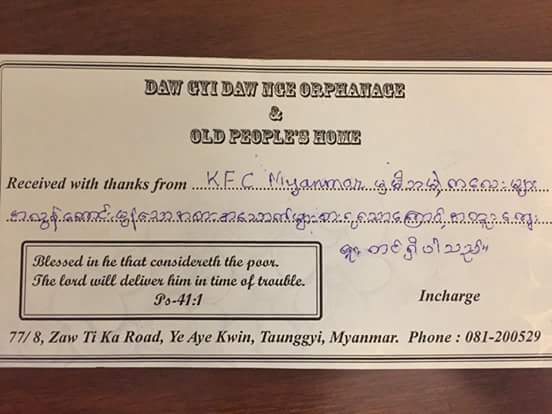 DAW GYI DAW NGE ORPHANAGE
&
OLD PEOPLE'S HOME
Received with thanks from KFC Myanmar မှ မိဘမဲ့ ကလေးများ
အလွန်ကောင်းမွန်သောအစားအသောက်များစားရသောကြောင့် အထူးကျေး
ဇူးတင်ရှိပါသည်။
Blessed in he that considereth the poor.
The lord will deliver him in time of trouble.
Ps-41:1
Incharge
77/ 8, Zaw Ti Ka Road, Ye Aye Kwin, Taunggyi, Myanmar. Phone : 081-200529